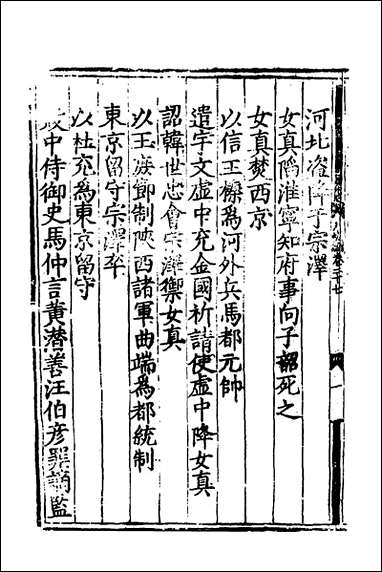 河北盗降于宗澤
女真陷淮寧知府事向子韶死之
女真焚西京
以信王榛為河外兵馬都元帥
遣宇文虛中充金國祈請使虛中降女真
詔韓世忠會宗澤禦女真
以王庶節制陝西諸軍曲端為都統制
東京留守宗澤卒
以杜充為東京留守
殿中侍御史馬仲言黃潛善汪伯彥罪謫監